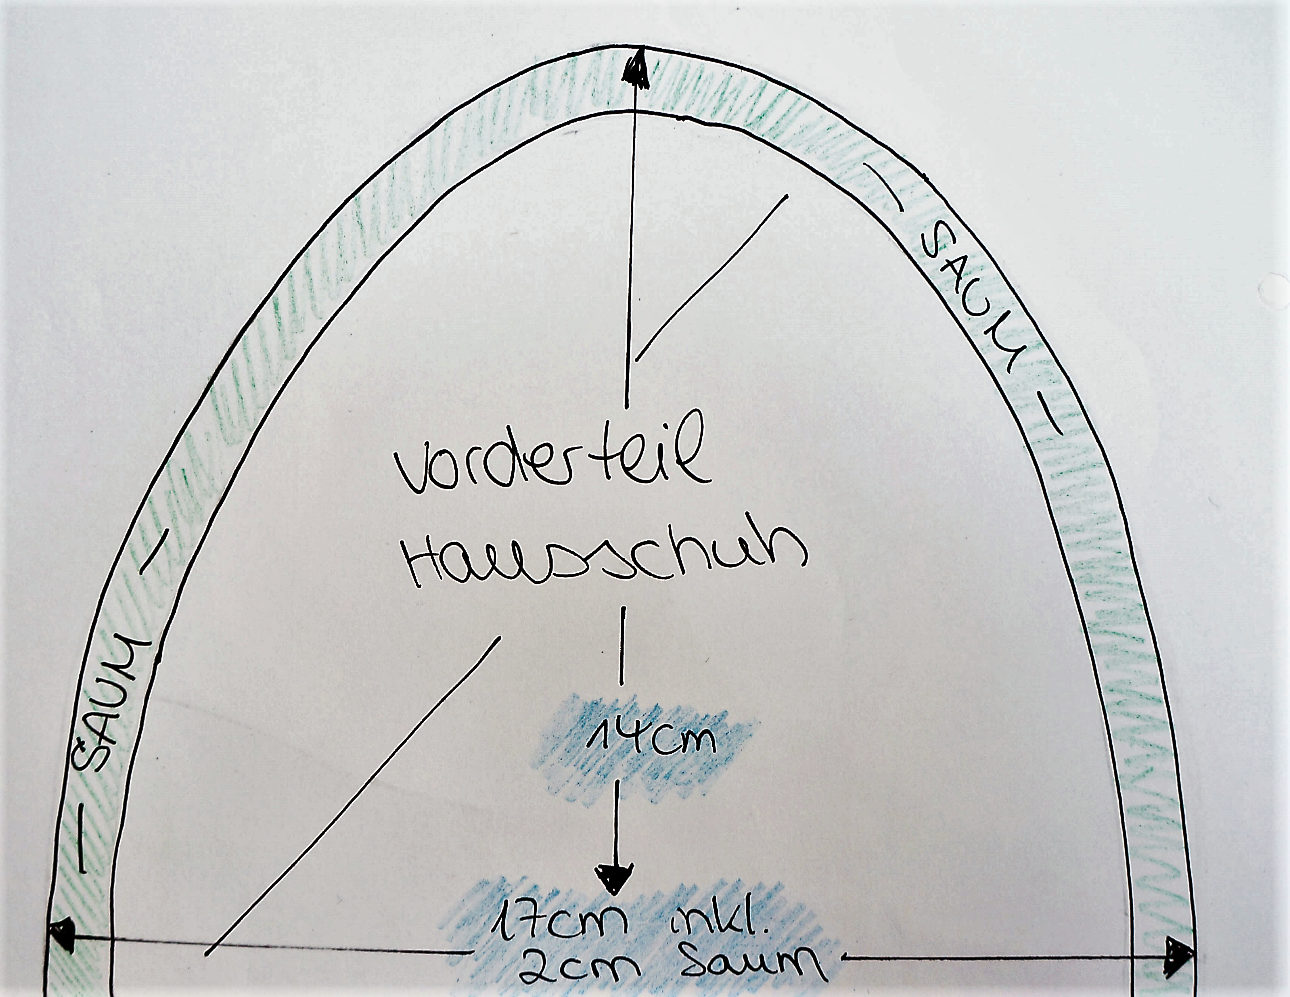 SAUM
Vorderteil
Hausschuh
SAUM
14cm
17cm inkl.
2cm Saum